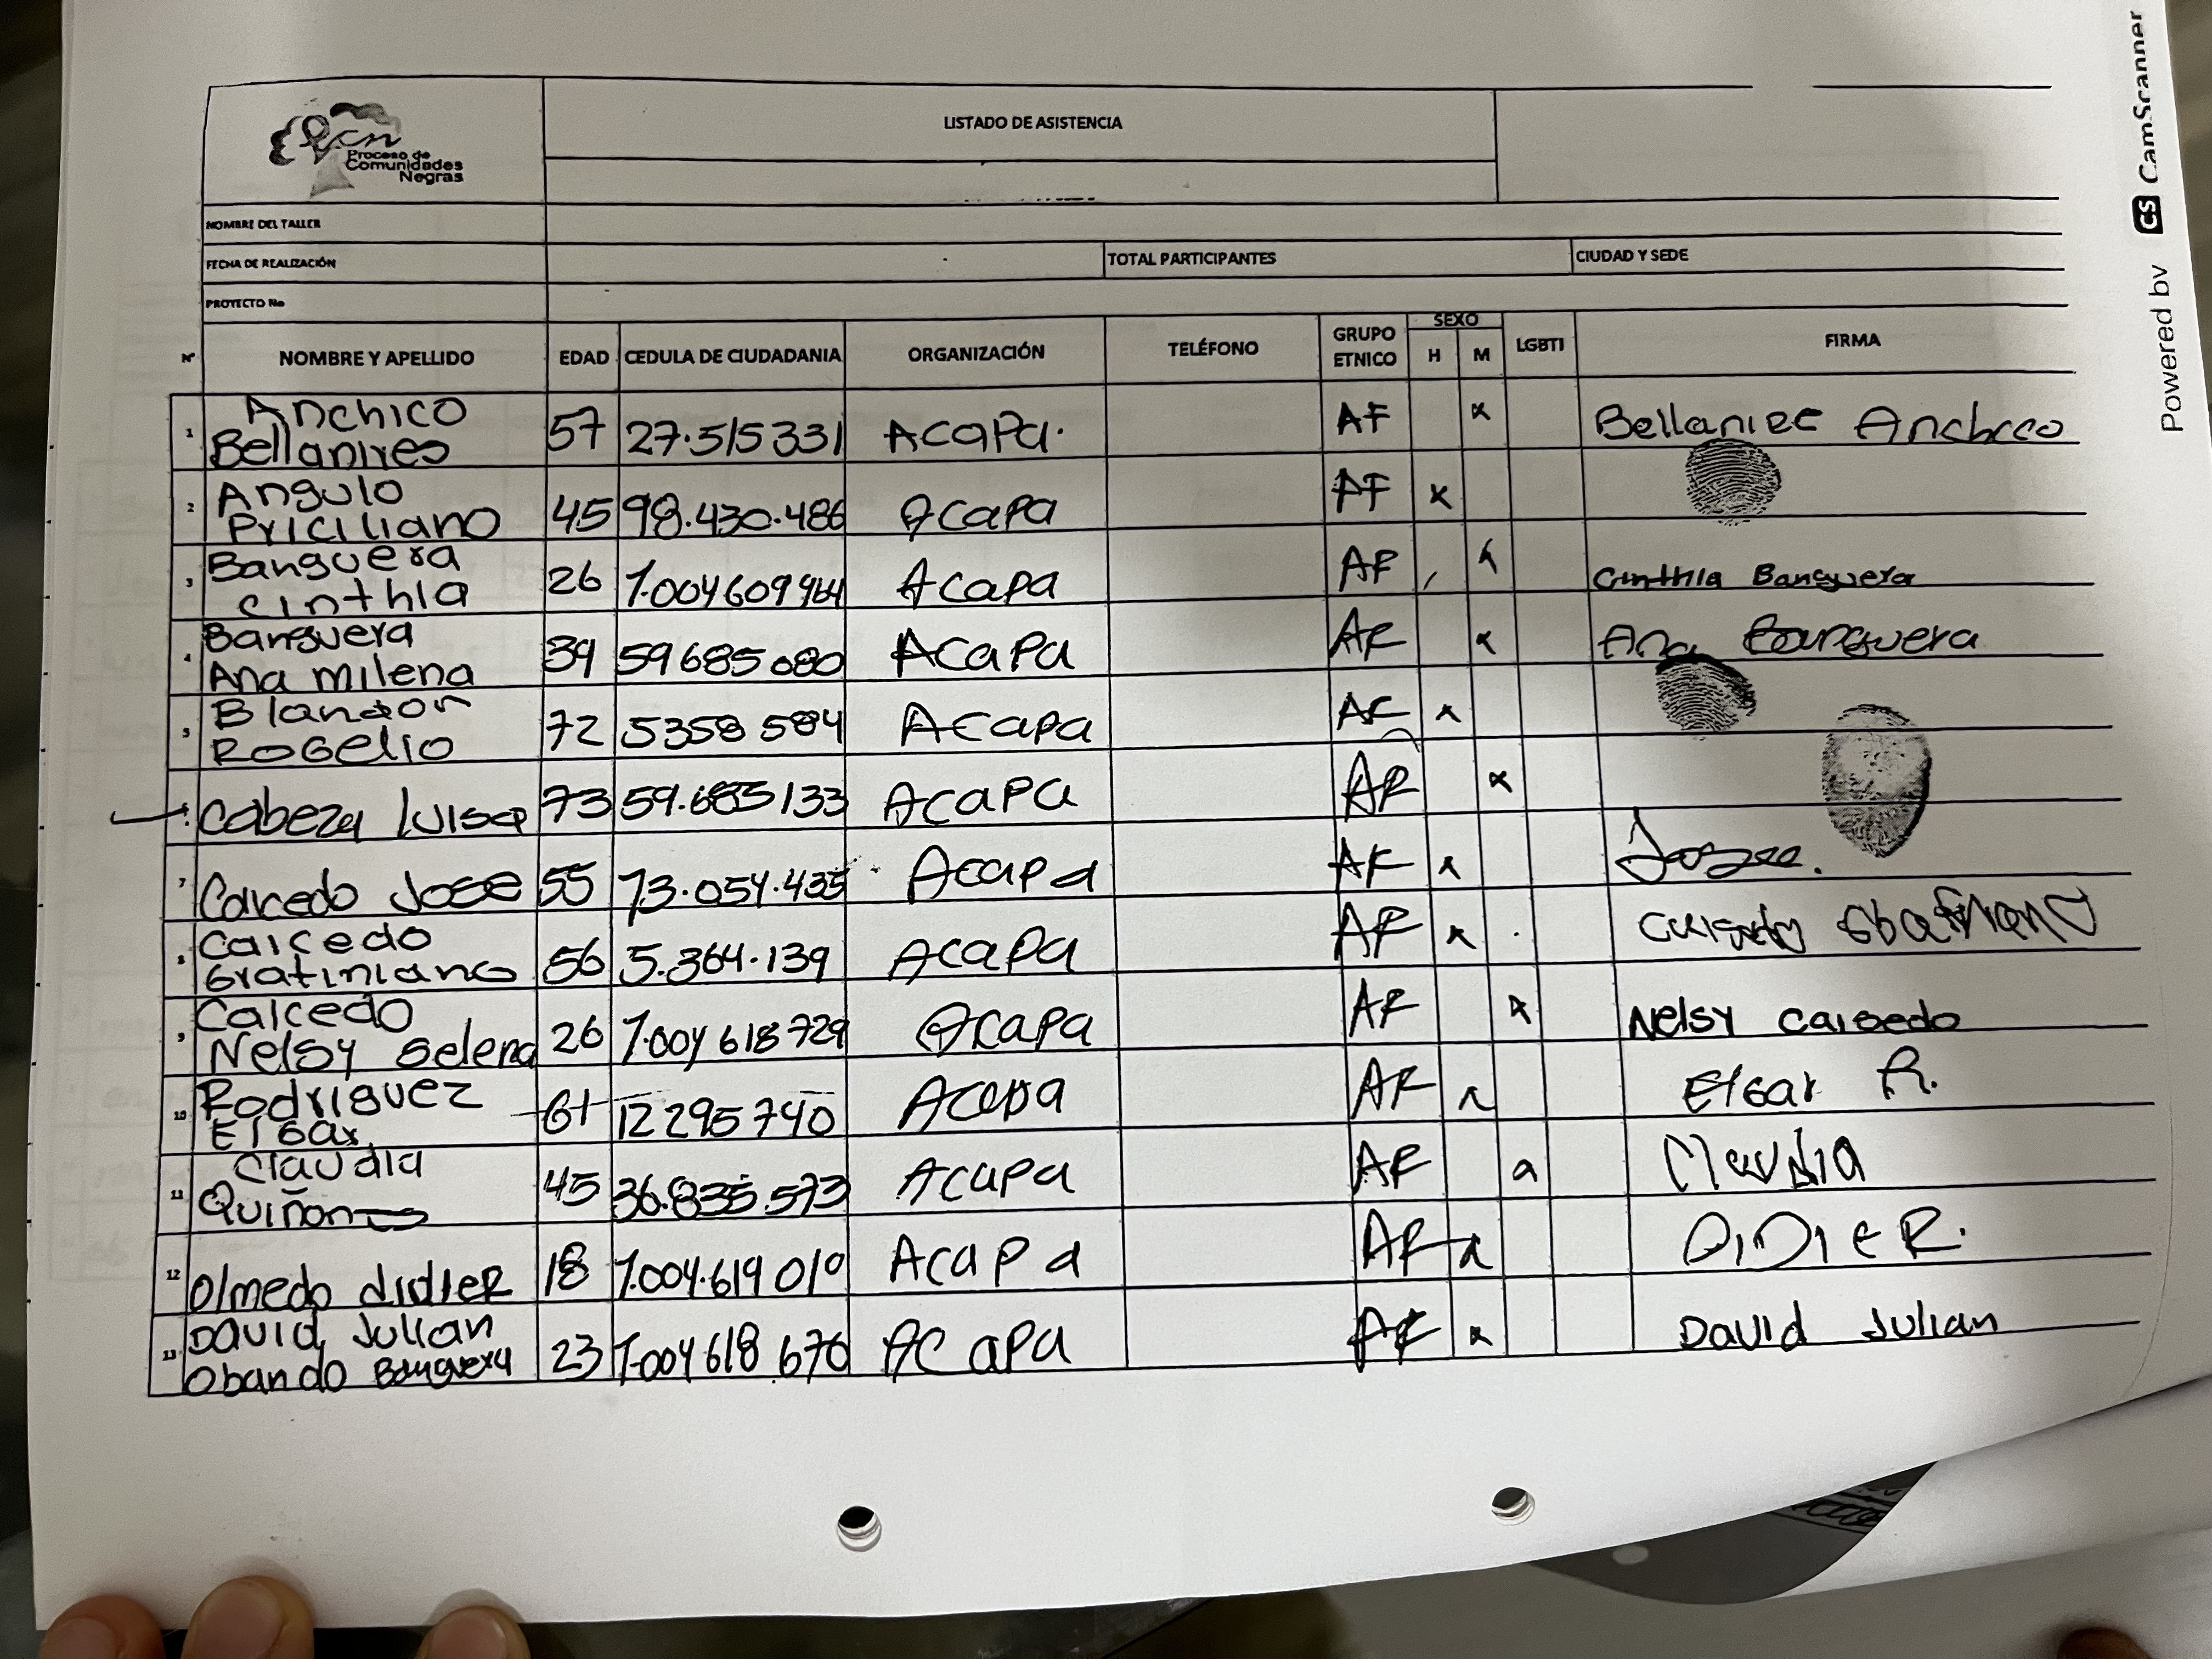 pcn
Proceso de
Comunidades
Negras
LISTADO DE ASISTENCIA
NOMBRE DEL TALLER
FECHA DE REALIZACIÓN
TOTAL PARTICIPANTES
CIUDAD Y SEDE
PROYECTO No
Nº NOMBRE Y APELLIDO EDAD CEDULA DE CIUDADANIA ORGANIZACIÓN TELÉFONO GRUPO ETNICO SEXO H M LGBTI FIRMA
1 Anchico Bellanires 57 27.515331 Acapa. AF x Bellanire
2 Angulo Priciliano 45 98.430.486 Acapa AF x
3 Banguera Cinthia 26 Acapa AF x Cinthia Banguera
4 Banguera Ana milena 39 59685080 Acapa AF x Ana Banguera
5 Rogelio 72 5358584 Acapa AF x
Cabeza luisa 73 Acapa AF x
7 Caicedo Jose 55 73.054.435 Acapa AF x
8 Caicedo Gratiniano 56 5.364.139 Acapa AF x
9 Caicedo Nelsy Selena 26 1.004 618 729 Acapa AF x Nelsy Caicedo
10 Rodriguez Elgar 61 12295740 Acapa AF x Elgar R.
11 Claudia Quiñones 45 36.835.573 Acapa AF x Claudia
12 Olmedo didier 18 1.004.619 010 Acapa AF x DiDieR.
13 David Julian Obando Banguera 23 1.004 618 670 Acapa AF x David Julian
Powered by CS CamScanner